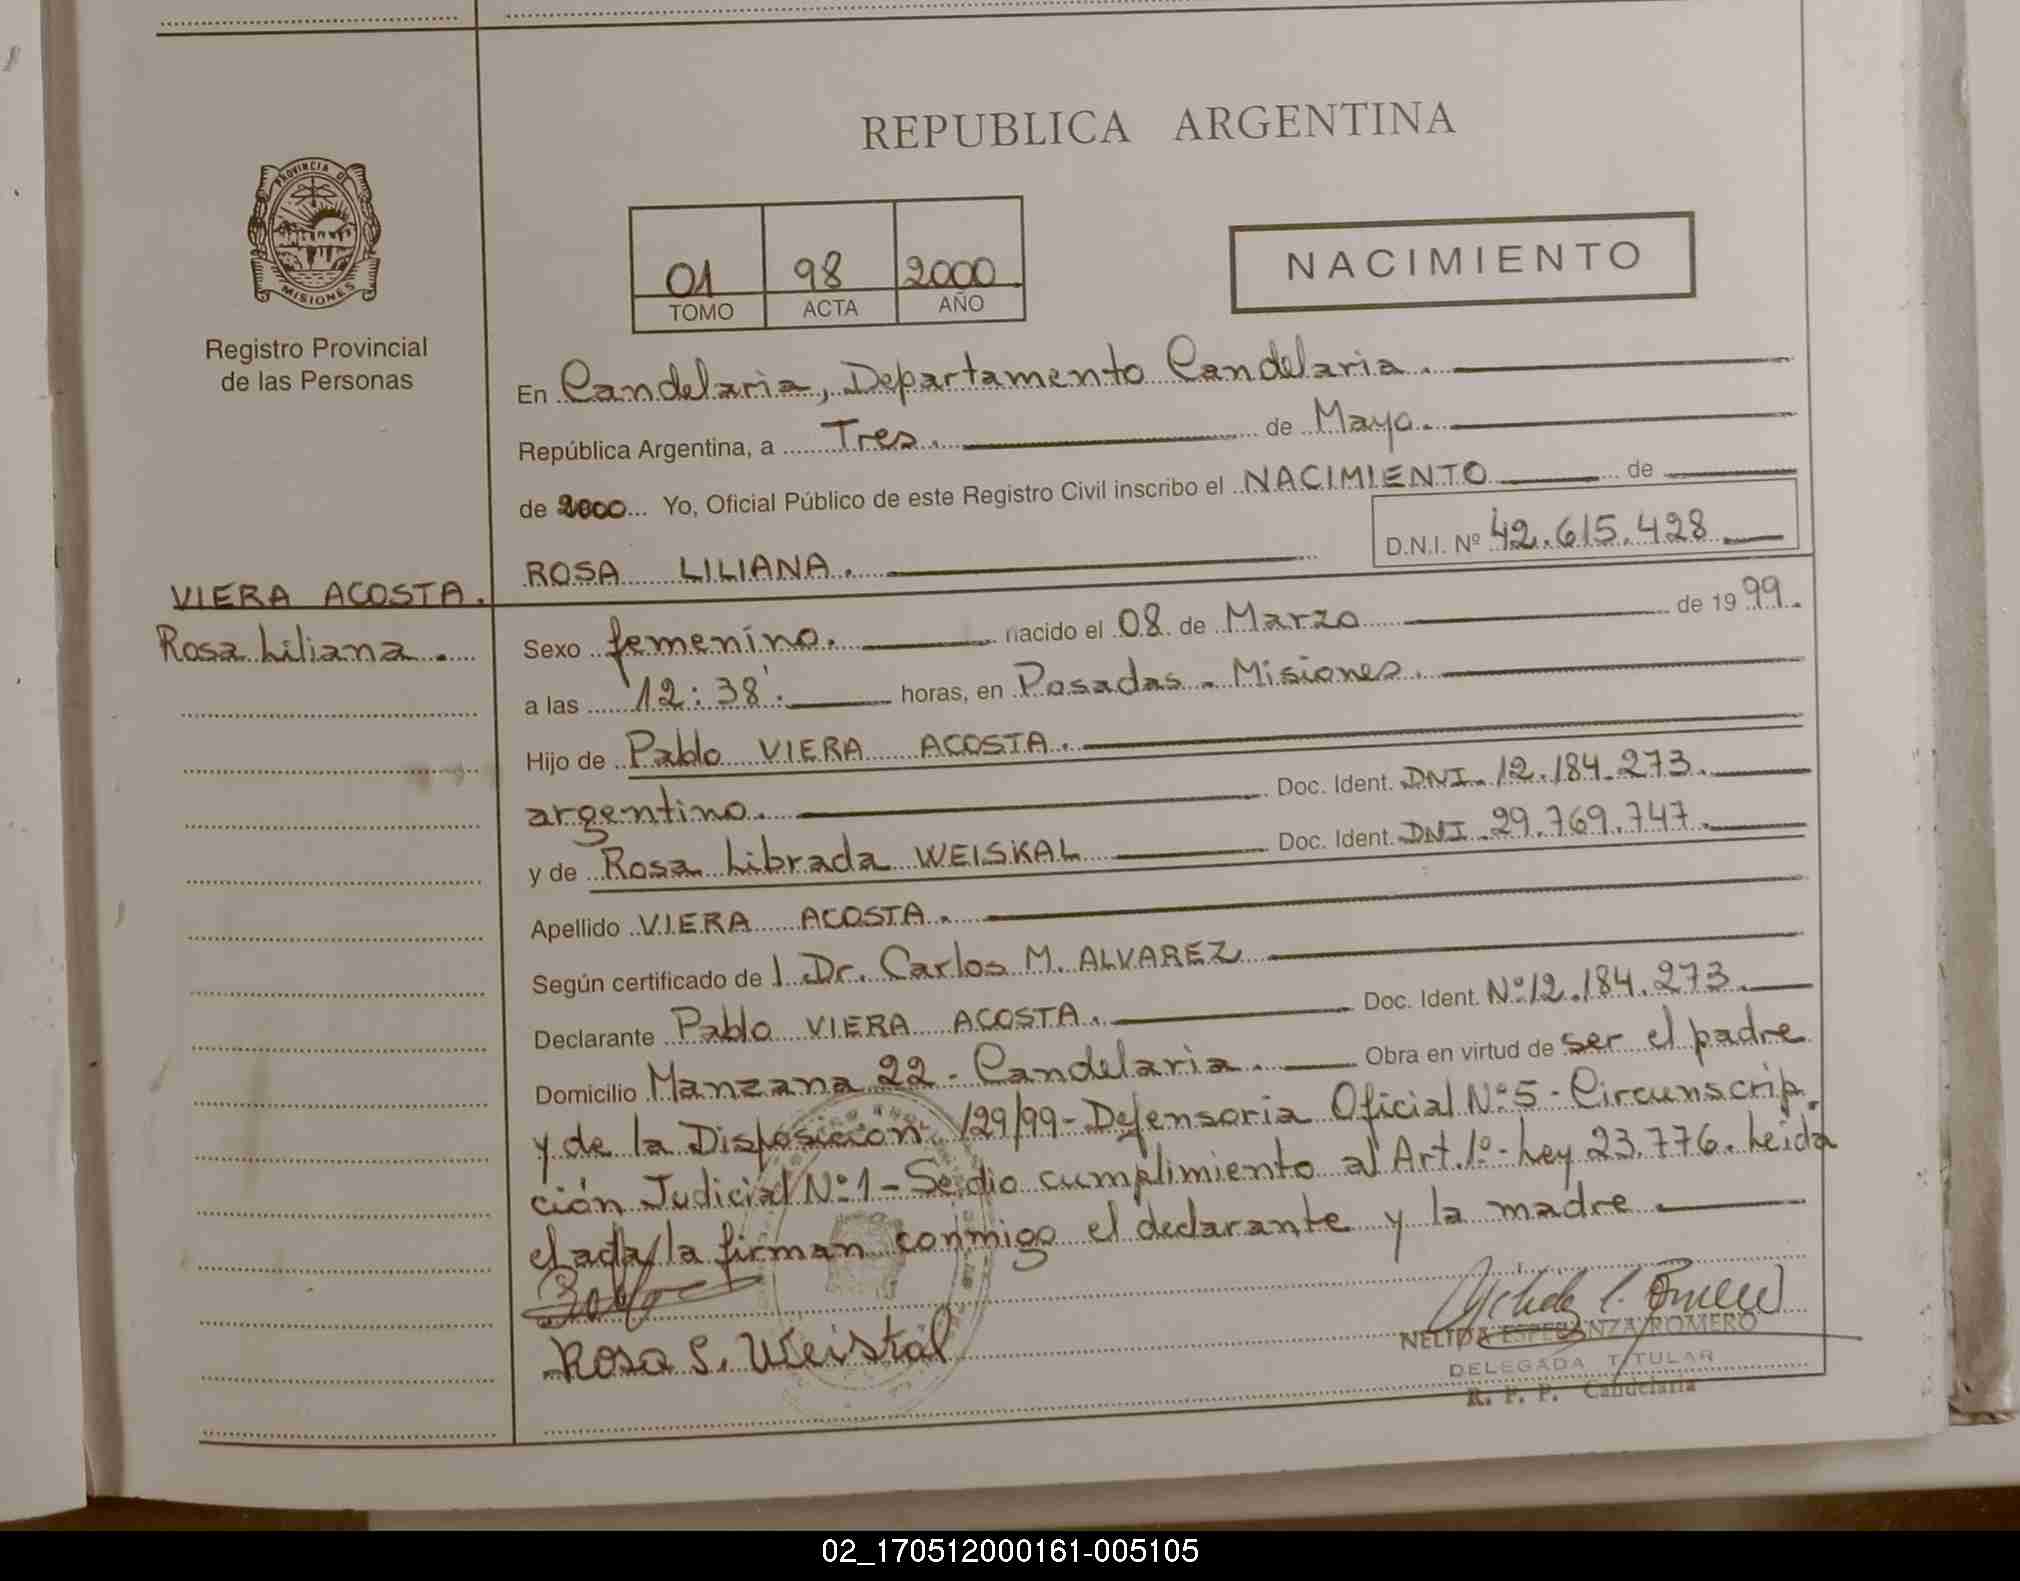 REPUBLICA ARGENTINA
PROVINCIA DE
MISIONES
Registro Provincial
de las Personas
01 98 2000
TOMO ACTA AÑO
NACIMIENTO
En Candelaria, Departamento Candelaria.
República Argentina, a Tres. de Mayo.
de 2000 Yo, Oficial Público de este Registro Civil inscribo el NACIMIENTO de
D.N.I. Nº 42.615.428
ROSA LILIANA.
VIERA ACOSTA.
Rosa Liliana.
Sexo femenino. nacido el 08 de Marzo de 1999.
a las 12:38'. horas, en Posadas - Misiones.
Hijo de Pablo VIERA ACOSTA.
argentino. Doc. Ident. DNI. 12.184.273.
y de Rosa Librada WEISKAL Doc. Ident. DNI 29.769.747.
Apellido VIERA ACOSTA.
Según certificado de l Dr. Carlos M. ALVAREZ
Declarante Pablo VIERA ACOSTA. Doc. Ident. Nº12.184.273.
Domicilio Manzana 22 - Candelaria. Obra en virtud de ser el padre
y de la Disposición 129/99 - Defensoria Oficial Nº5 - Circunscrip.
ción Judicial Nº1 - Se dio cumplimiento al Art. 1º - Ley 23.776. Leida
el acta/la firman conmigo el declarante y la madre
Rosa L. Weiskal
NELIDA ESPERANZA ROMERO
DELEGADA TITULAR
R. P. P. Candelaria
02_170512000161-005105